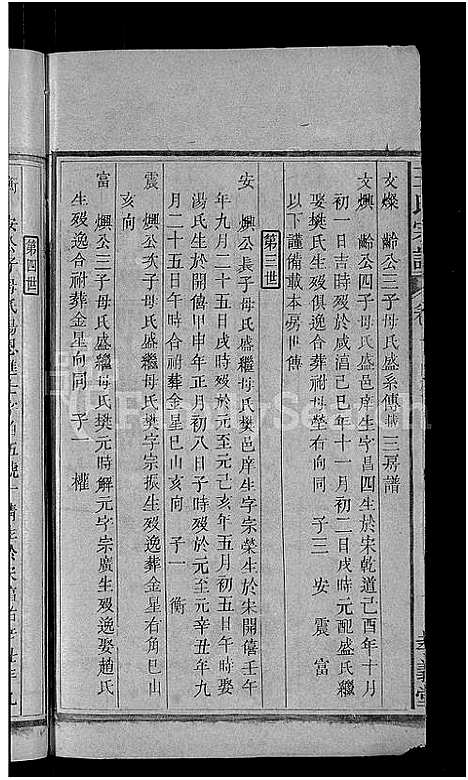 王氏宗譜
文燦　齡公三子母氏盛系傳載三房譜
文興　齡公四子母氏盛邑庠生字昌四生於宋乾道己酉年十月
初一日吉時歿於咸淳己巳年十一月初二日戌時元配盛氏繼
娶樊氏生歿逸合葬祔母塋右向同　子三　安　震　富
以下謹備載本房世傳
第三世
安　興公長子母氏盛繼母氏樊邑庠生字宗榮生於宋開禧壬午
年九月二十五日戌時歿於元至元己亥年五月初五日午時娶
湯氏生於開禧甲申年正月初八日子時歿於元至辛丑年九
月二十五日午時合祔葬金星巳山亥向　子一　衡
震　興公次子母氏盛繼母氏樊字宗振生歿逸葬金星右角巳山
亥向
富　興公三子母氏盛繼母氏樊元時解元字宗廣生歿逸娶趙氏
生歿逸合祔葬金星向同　子一　權
第四世
FamilySearch